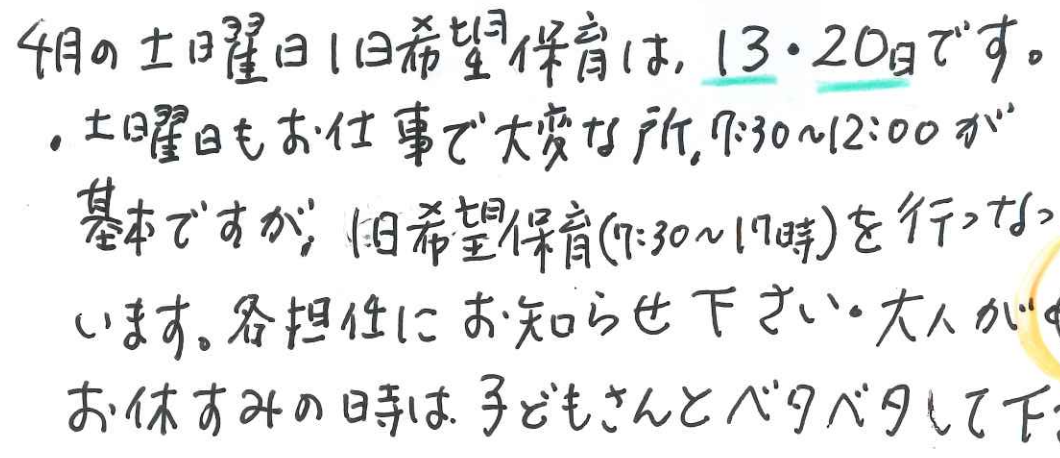 4月の土曜日1日希望保育は、13・20日です。
・土曜日もお仕事で大変な所、7:30~12:00が
基本ですが、1日希望保育(7:30~17時)を行っな
います。各担任にお知らせ下さい。大人が
お休すみの時は、子どもさんとベタベタして下